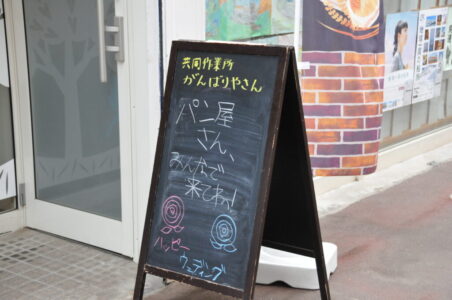 共同作業所
がんばりやさん
パン屋
さん、
みんなで
来てね!
ハッピー
ウェディング